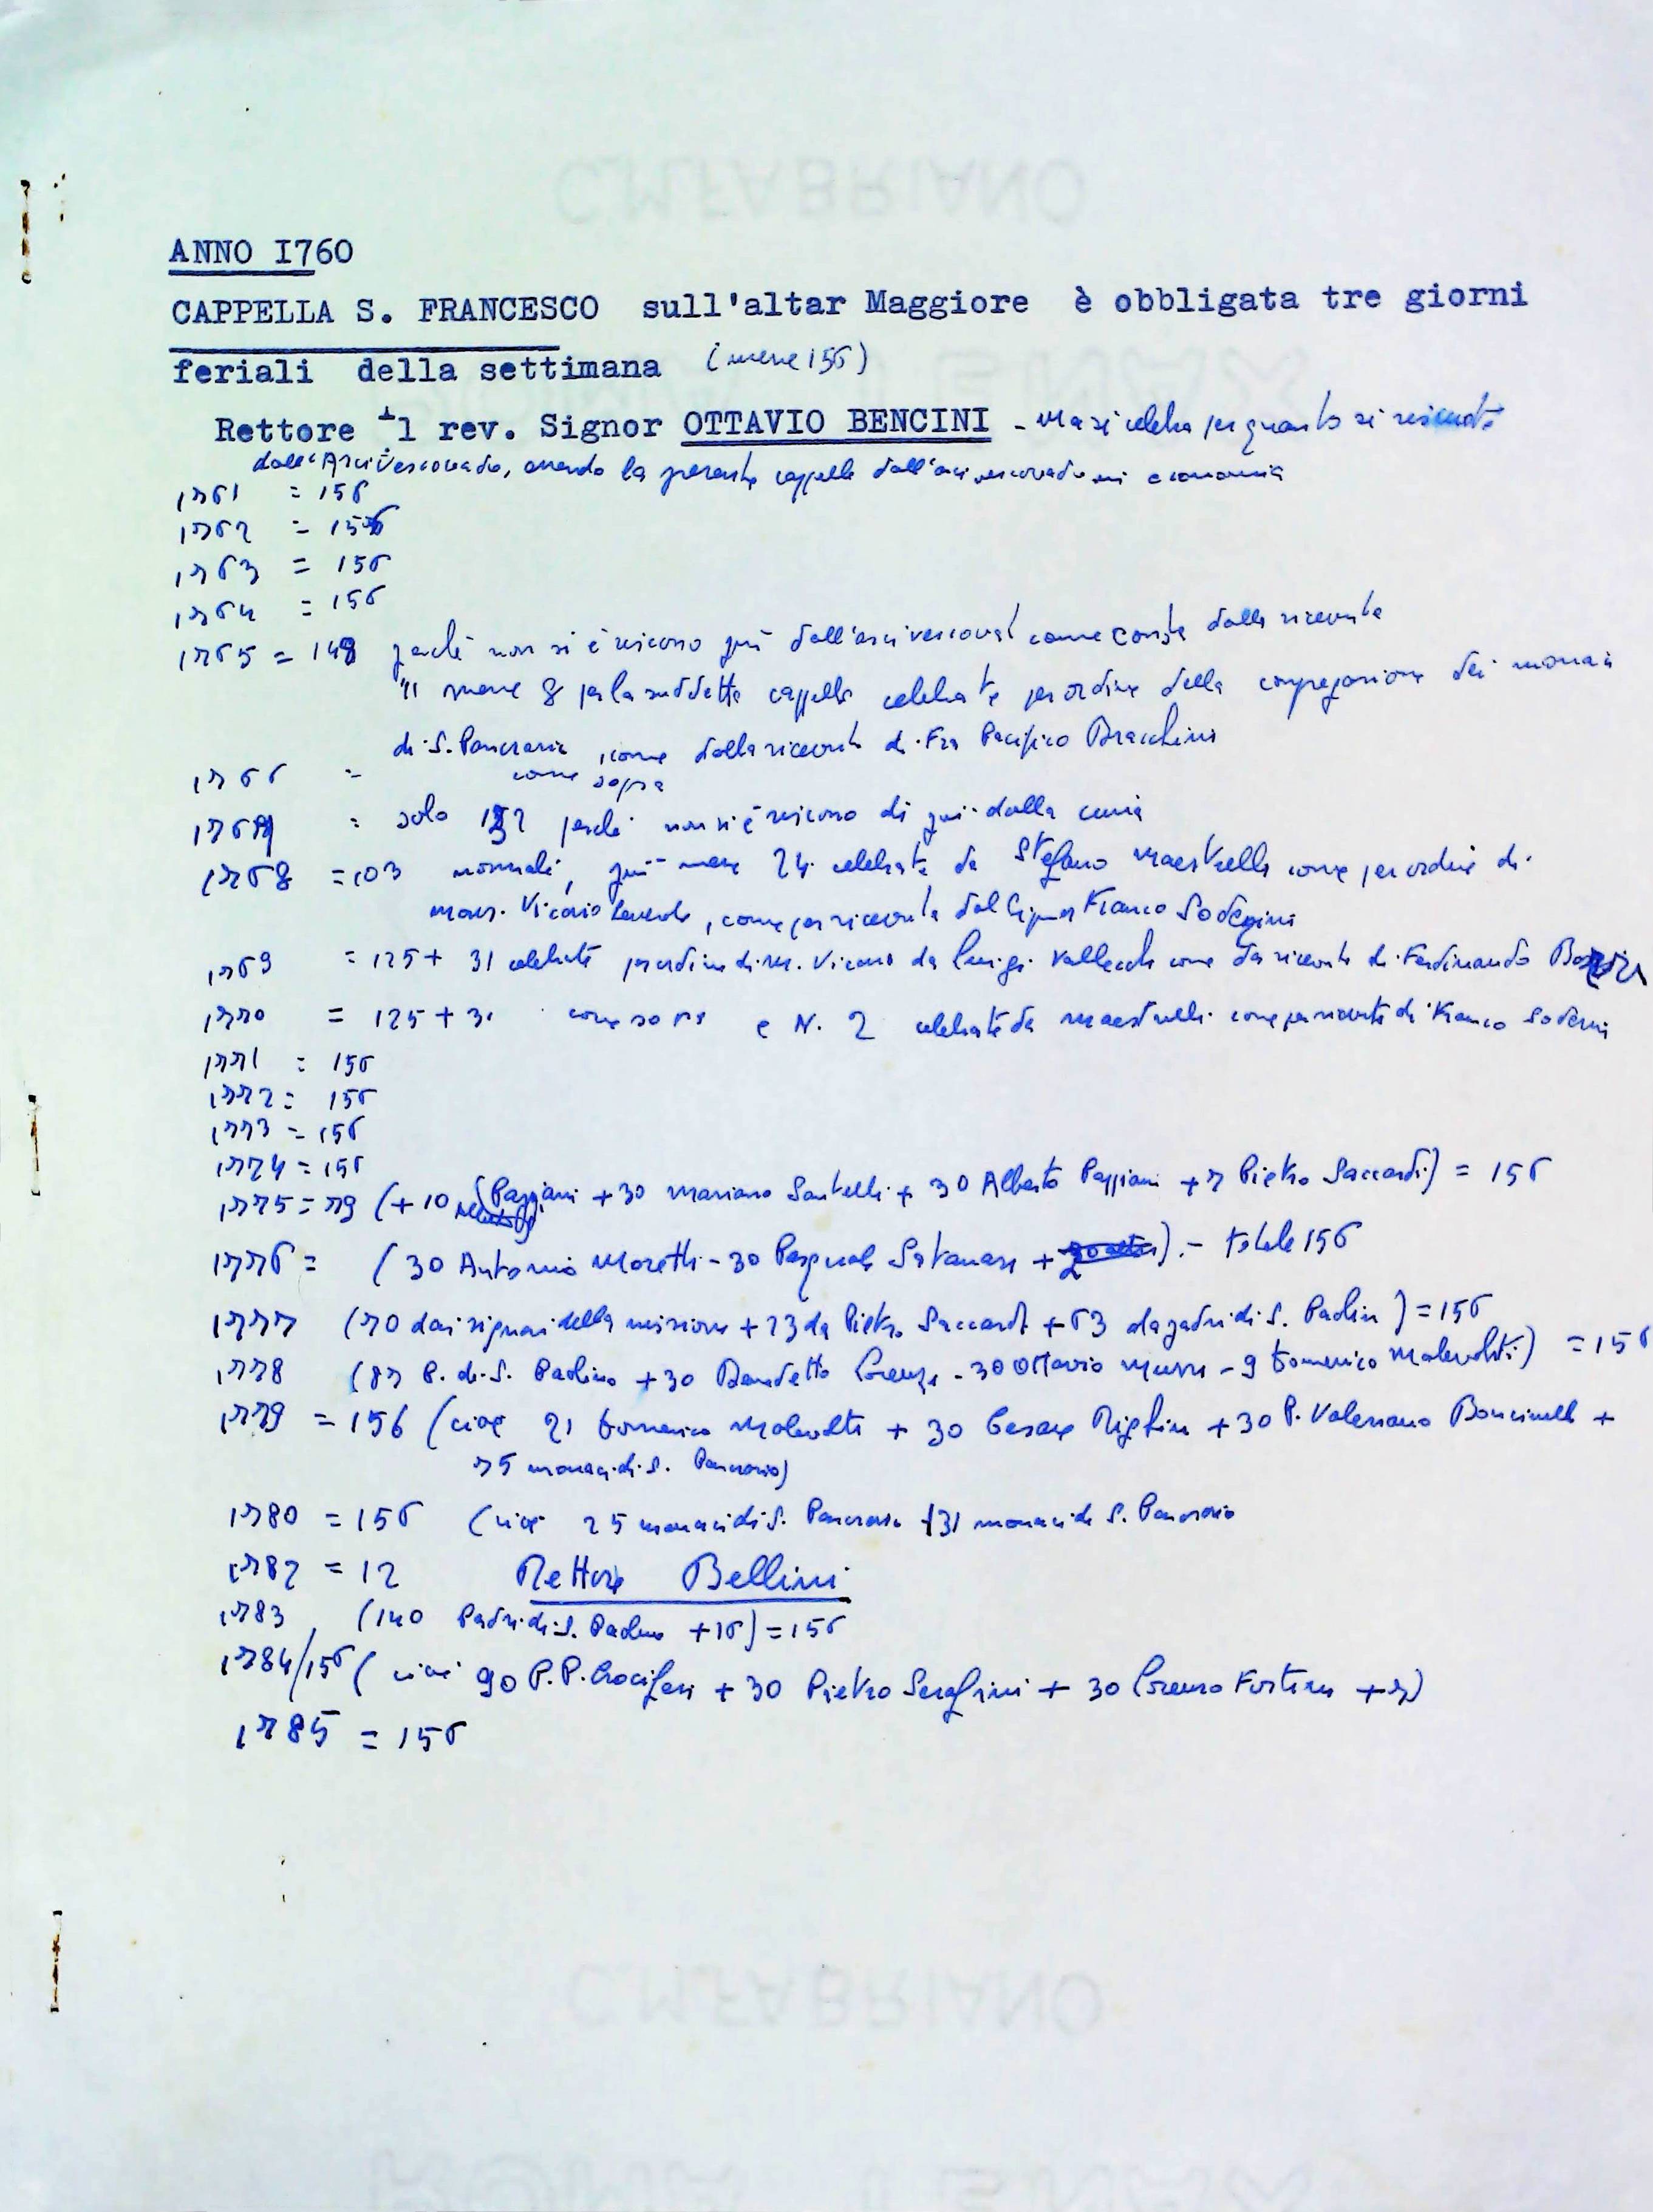 ANNO I760
CAPPELLA S. FRANCESCO sull'altar Maggiore è obbligata tre giorni
feriali della settimana (messe 156)
Rettore il rev. Signor OTTAVIO BENCINI - Ma si celebra per quanto si riscuote
dall'Arcivescovado, essendo la presente cappella dall'arcivescovado in economia
1761 = 156
1762 = 156
1763 = 156
1764 = 156
1765 = 148 perché non si è riscosso più dall'arcivescovat come consta dalla ricevuta
più messe 8 per la suddetta cappella celebrate per ordine della congregazione dei monaci
di S. Pancrazio, come dalla ricevuta di Fra Pacifico Bracchini
1766 = come sopra
1767 = solo 132 perché non si è riscosso di più dalla curia
1768 = 103 normali, più messe 24 celebrate da Stefano Maestrelli come per ordine di
mons. Vicario, come per ricevuta del Signor Franco Soderini
1769 = 125 + 31 celebrate per ordine di m. Vicario da Luigi Vallecchi come da ricevuta di Ferdinando
1770 = 125 + 31 come sopra e N. 2 celebrate da Maestrelli come per ricevuta di Franco Soderini
1771 = 156
1772 = 156
1773 = 156
1774 = 156
1775 = 79 (+ 10 Paggiani + 30 Mariano Santelli + 30 Alberto Paggiani + 7 Pietro Saccardi) = 156
1776 = (30 Antonio Moretti - 30 Pasquale Satanassi + ) .- totale 156
1777 (70 dai signori della missione + 23 da Pietro Saccardi + 63 da padri di S. Paolin) = 156
1778 (87 P. di S. Paolino + 30 Benedetto Lorenzi - 30 Ottavio Murri - 9 Domenico Malevolti) = 156
1779 = 156 (cioè 21 Domenico Malevolti + 30 Cesare Righini + 30 P. Valeriano Boncinelli +
75 monaci di S. Pancrazio)
1780 = 156 (cioè 25 monaci di S. Pancrazio + 31 monaci di S. Pancrazio
1782 = 12 Rettore Bellini
1783 (140 Padri di S. Paolino + 16) = 156
1784/156 (cioè 90 P.P. Crociferi + 30 Pietro Serafini + 30 Lorenzo Fortini + 7)
1785 = 156
C.M.FABRIANO
C.M.FABRIANO